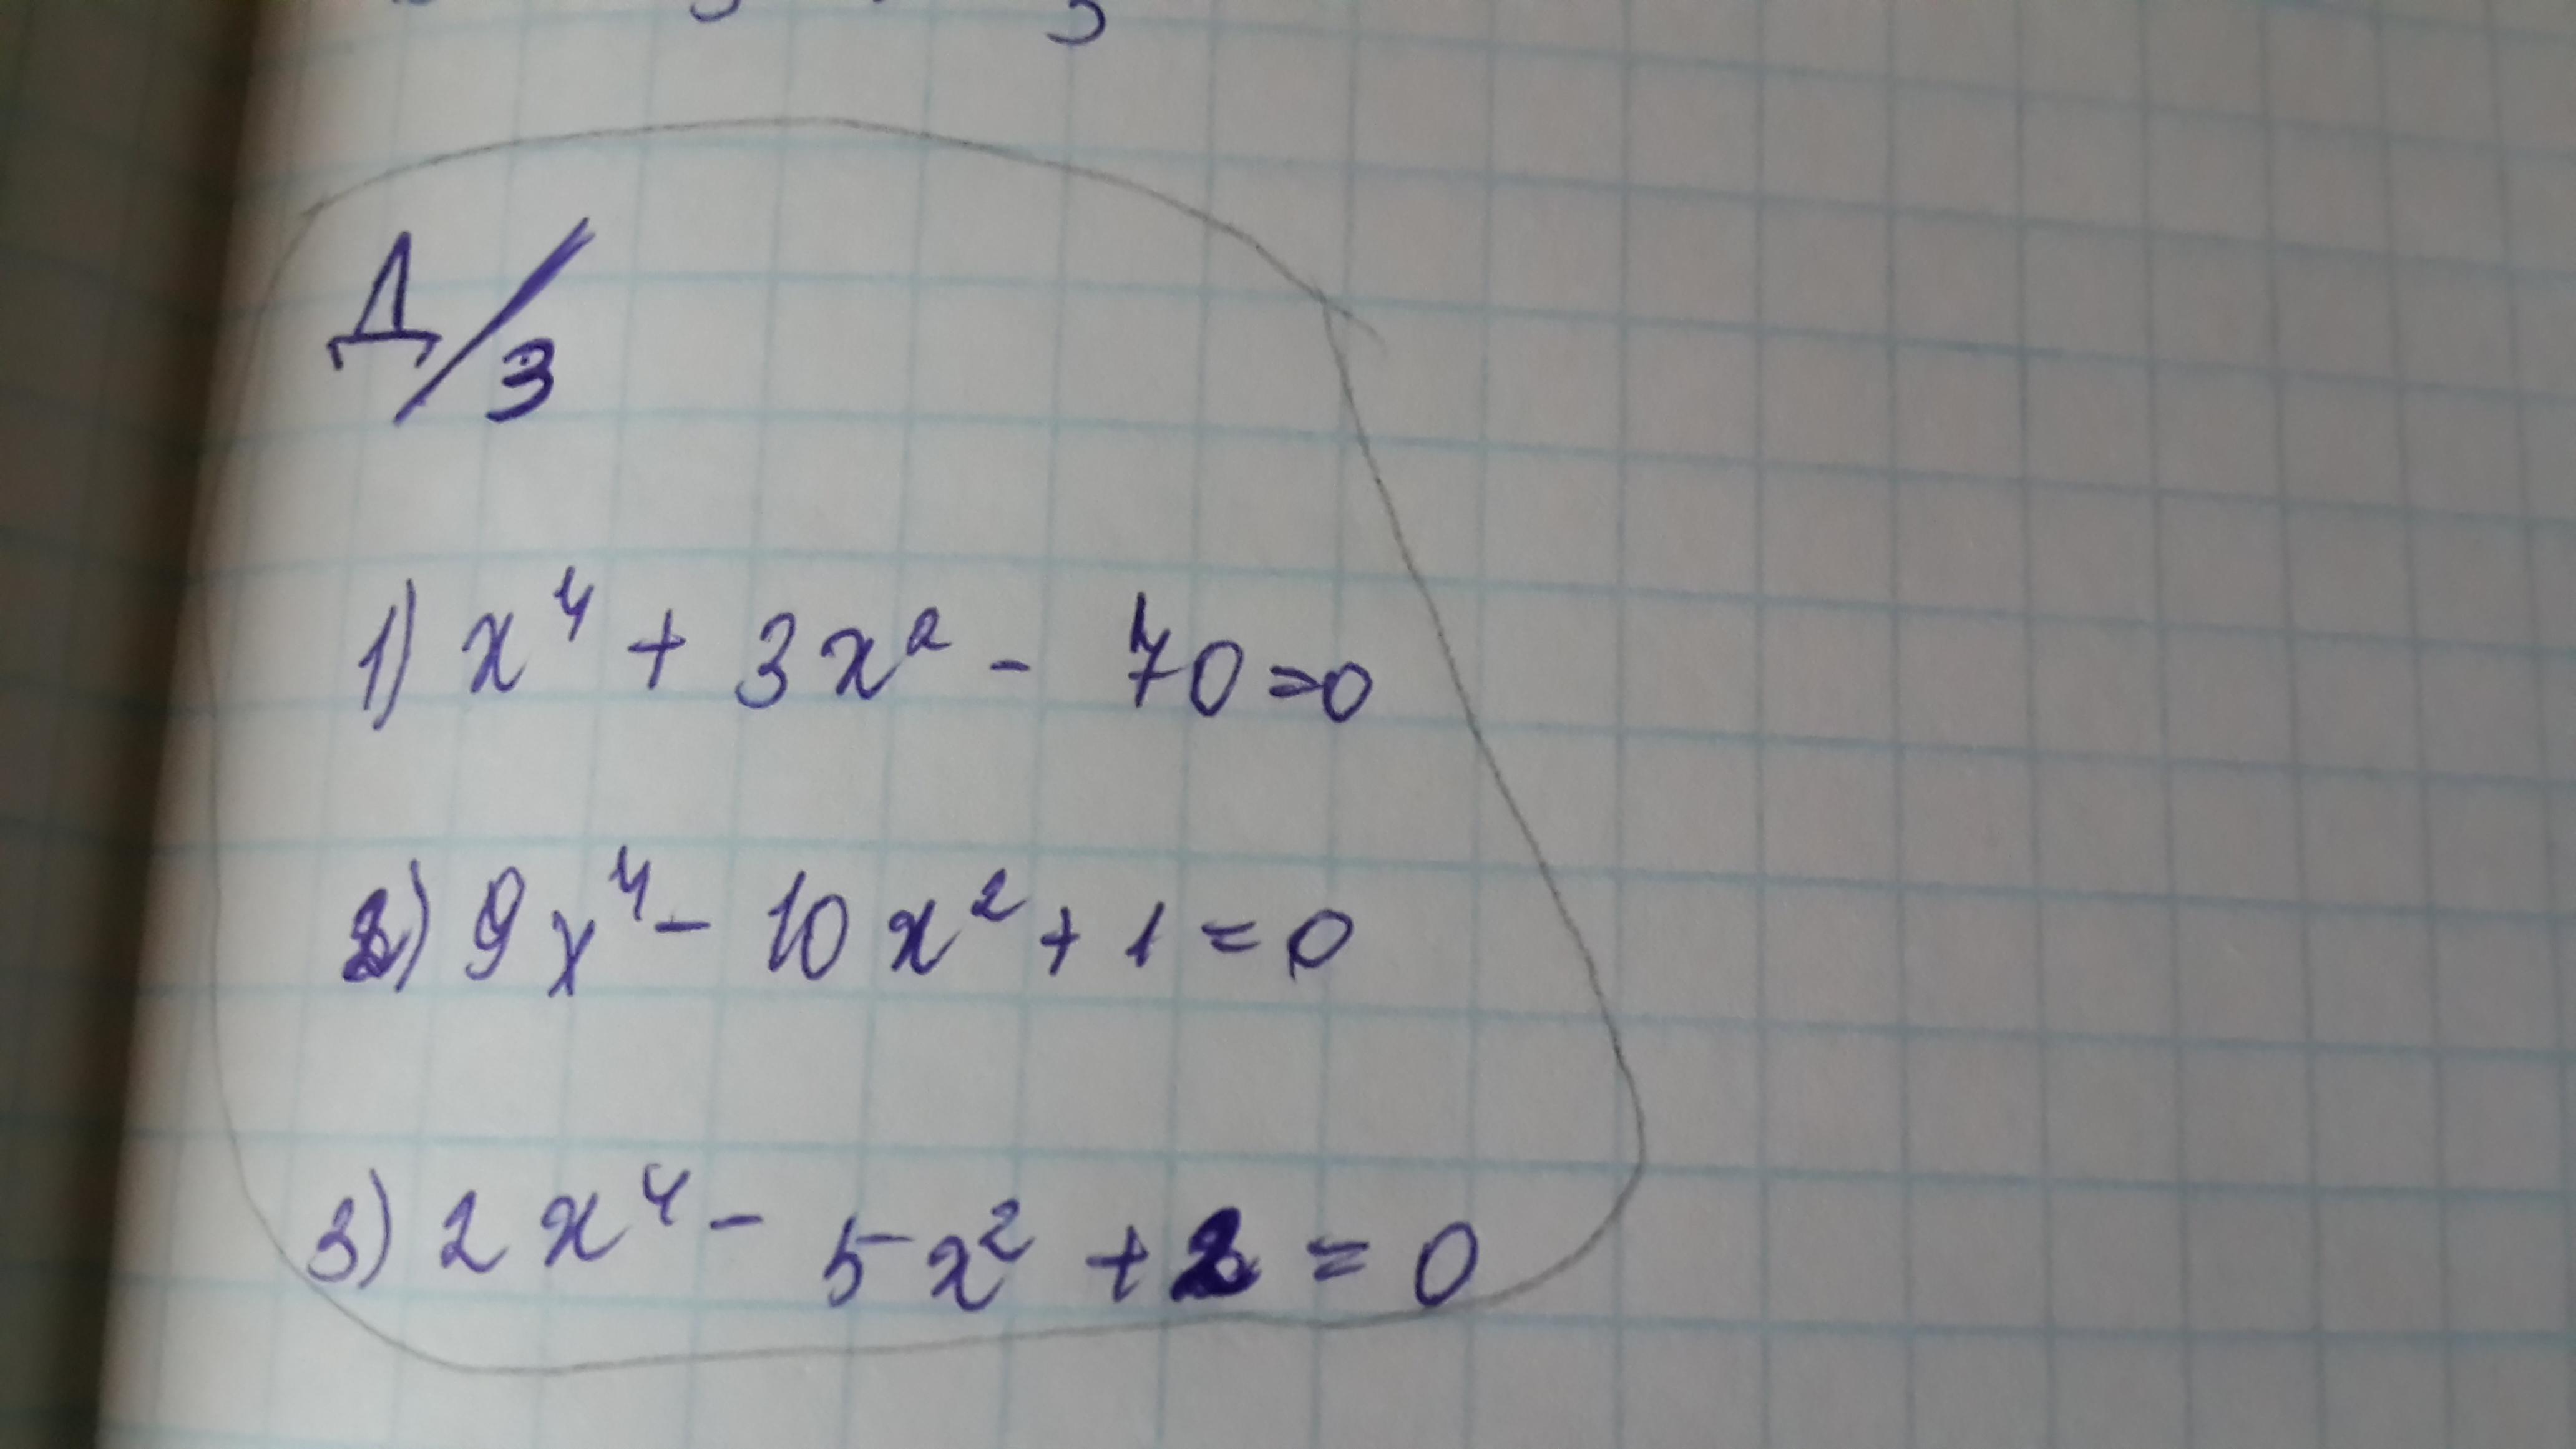 Д/з
1) x⁴ + 3x² - 70 = 0
2) 9x⁴ - 10x² + 1 = 0
3) 2x⁴ - 5x² + 2 = 0